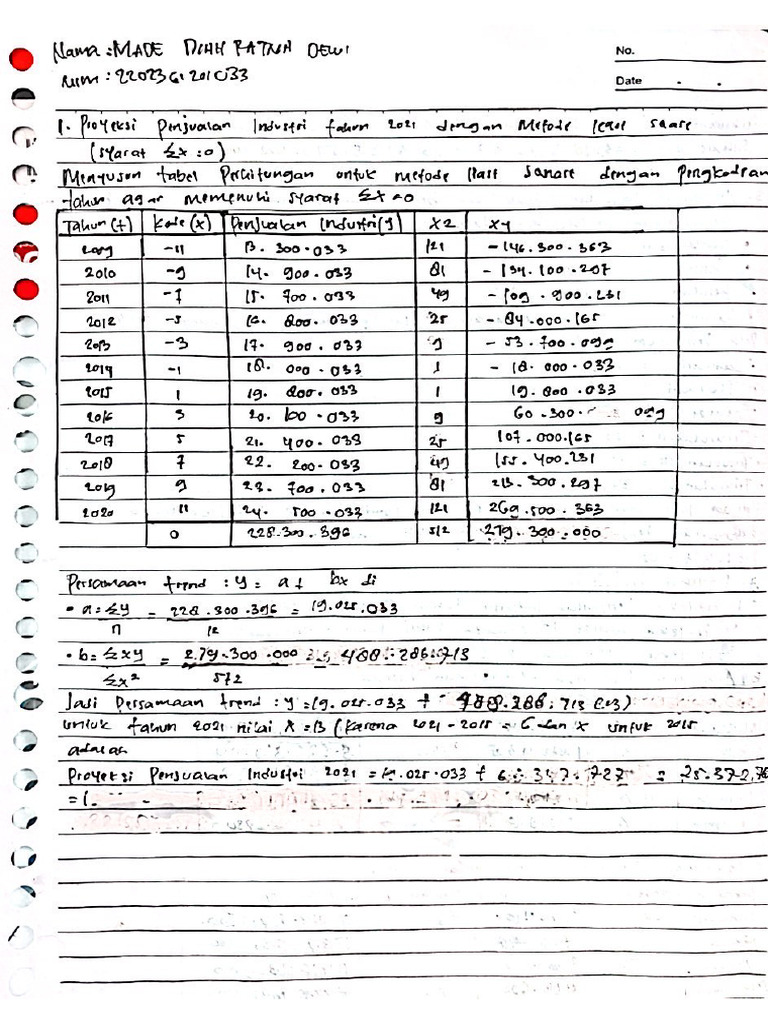 Nama : MADE DIAH RATNA DEWI
No.
NIM : 2202361201033
Date
1. Proyeksi Penjualan Industri tahun 2021 dengan Metode least square
(syarat Σx = 0)
Menyusun tabel Perhitungan untuk metode least square dengan Pengkodean
tahun agar memenuhi syarat Σx = 0
Tahun (t) Kode (x) Penjualan Industri (y) X2 XY
2009 -11 13.300.033 121 -146.300.363
2010 -9 14.900.033 81 -134.100.297
2011 -7 15.700.033 49 -109.900.231
2012 -5 16.800.033 25 -84.000.165
2013 -3 17.900.033 9 -53.700.099
2014 -1 18.000.033 1 -18.000.033
2015 1 19.800.033 1 19.800.033
2016 3 20.100.033 9 60.300. 099
2017 5 21.400.033 25 107.000.165
2018 7 22.200.033 49 155.400.231
2019 9 23.700.033 81 213.300.297
2020 11 24.500.033 121 269.500.363
0 228.300.396 572 279.300.000
Persamaan trend : y = a + bx di
• a = Σy = 228.300.396 = 19.025.033
n 12
• b = Σxy = 279.300.000 = 488.286.713
Σx² 572
Jadi Persamaan trend : y = 19.025.033 + 488.286.713 (13)
untuk tahun 2021 nilai x = 13 (karena 2021 - 2015 = 6 dan x untuk 2015
adalah
Proyeksi Penjualan Industri 2021 = 19.025.033 + 6.347.727 = 25.372.76